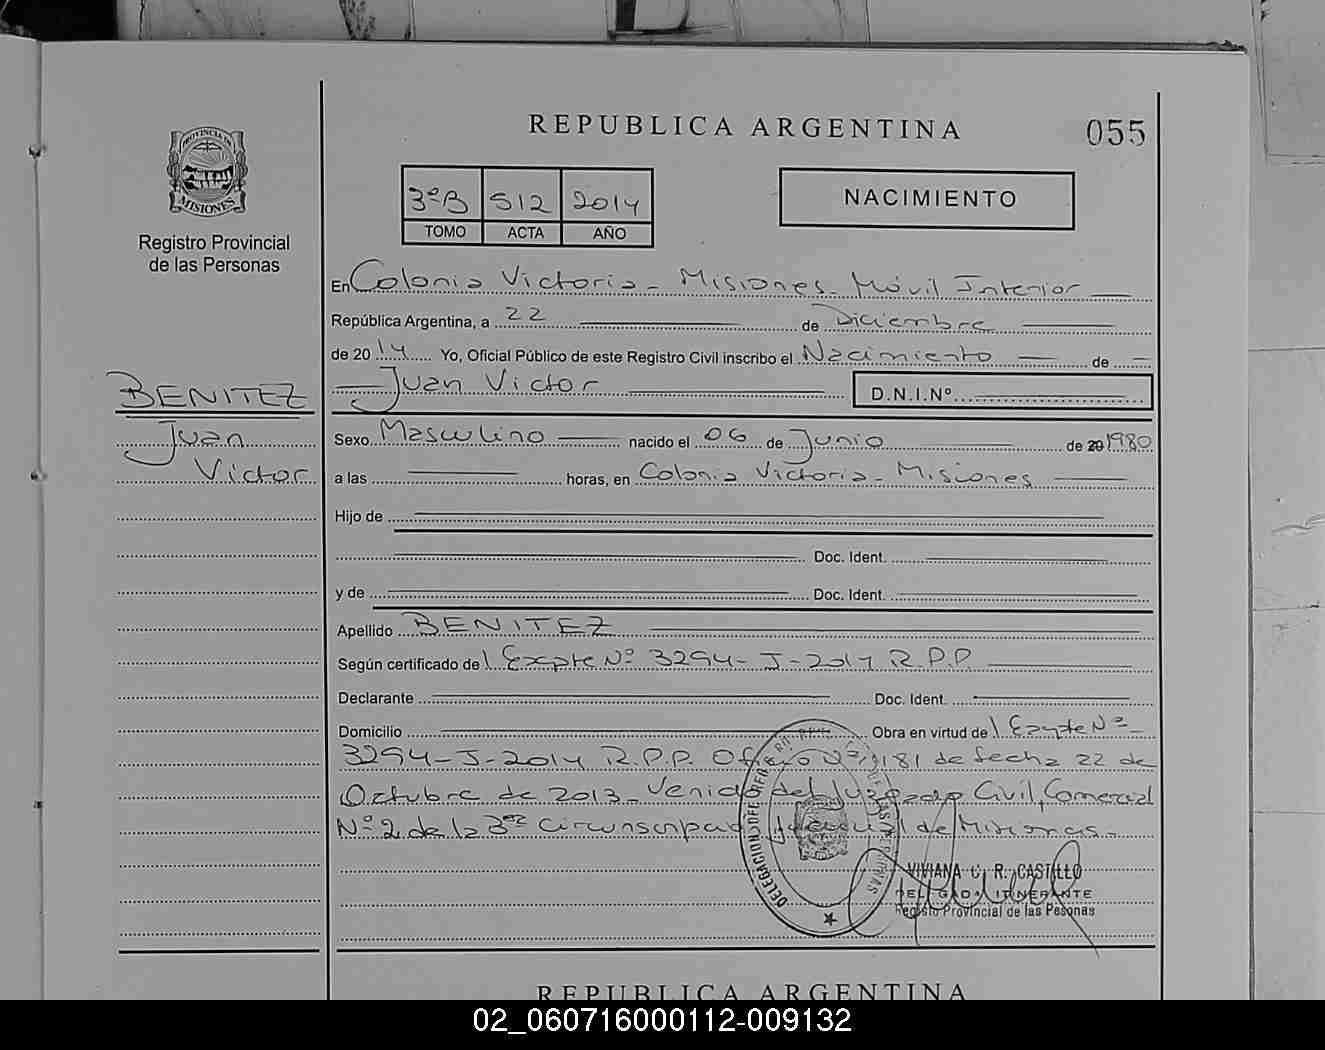 REPUBLICA ARGENTINA
055
PROVINCIA DE
MISIONES
Registro Provincial
de las Personas
3ºB 512 2014
TOMO ACTA AÑO
NACIMIENTO
En Colonia Victoria - Misiones - Móvil Interior
República Argentina, a 22 de Diciembre
de 2014 Yo, Oficial Público de este Registro Civil inscribo el Nacimiento de
Juan Victor
D.N.I.Nº
BENITEZ
Juan
Victor
Sexo Masculino nacido el 06 de Junio de 20 1980
a las horas, en Colonia Victoria - Misiones
Hijo de
Doc. Ident.
y de Doc. Ident.
Apellido BENITEZ
Según certificado de Expte Nº 3294-J-2014 R.P.P.
Declarante Doc. Ident.
Domicilio Obra en virtud de Expte Nº
3294-J-2014 R.P.P. Oficio Nº 1181 de fecha 22 de
Octubre de 2013 - Venido del Juzgado Civil, Comercial
Nº 2 de la 3era Circunscripción Judicial de Misiones.
VIVIANA R. CASTILLO
DELEGADA ITINERANTE
Registro Provincial de las Pesonas
REPUBLICA ARGENTINA
02_060716000112-009132